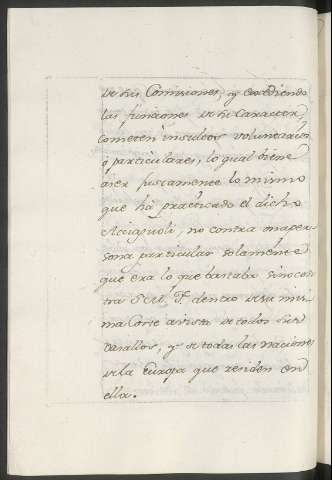 de sus Comisiones, y excediendo
las funciones de su Caracter,
cometen insultos voluntarios
ó particulares, lo qual biene
á ser justamente lo mismo
que há practicado el dicho
Acciapuoli, no contra una per
sona particular solamente
que era lo que bastaba sino con
tra S. M. F. dentro de su mis
ma Corte á vista de todos sus
vasallos, y de todas las naciones
de la Europa que residen en
ella.